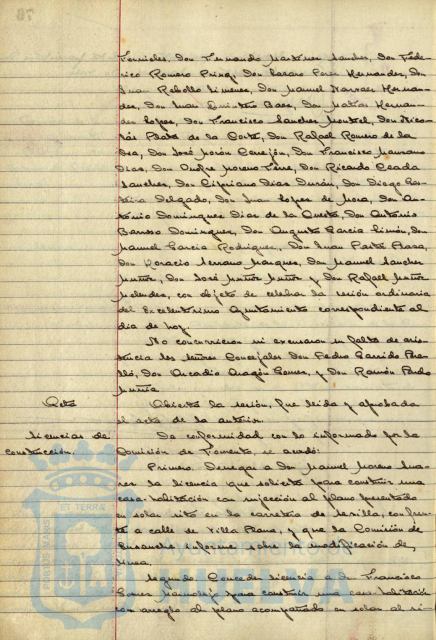 Don Fernando Martinez Sanchez, Don Fede-
rico Romero Perez, Don Lazaro Perez Hernandez, Don
Juan Rebollo Jimenez, Don Manuel Narvaez Hernan-
dez, Don Juan Quintero Baez, Don Matias Hernan-
dez Lopez, Don Francisco Sanchez Montiel, Don Nico-
lás Plata de la Corte, Don Rafael Romero de la
Don José Morón Don Francisco
Diaz, Don Onofre Moreno Don Ricardo
Sanchez, Don Cipriano Diaz Durán, Don Diego
Delgado, Don Juan Lopez de Mora, Don An-
tonio Dominguez Diaz de la Don Antonio
Barroso Dominguez, Don Augusto Garcia Don
Manuel Garcia Rodriguez, Don Juan
Don Horacio Serrano Marquez, Don Manuel Sanchez
Muñoz, Don José Muñoz Muñoz y Don Rafael Muñoz
Melendez, con objeto de celebrar la sesión ordinaria
del Excelentisimo Ayuntamiento correspondiente al
dia de hoy.
No concurrieron ni excusaron su falta de asis-
tencia los señores Concejales Don Pedro Garrido
Don Arcadio Aragón Gomez, y Don Ramón Pardo
Acta
Abierta la sesión, fue leida y aprobada
el acta de la anterior.
Licencias de
construcción.
De conformidad con lo informado por la
Comisión de Fomento, se acordó:
Primero. Denegar a Don Manuel Moreno
la licencia que solicita para construir una
casa-habitación con sujeción al plano presentado
en solar sito en la carretera de Sevilla, con fren-
te a calle y que la Comisión de
Ensanche informe sobre la modificación de
linea.
Segundo. Conceder licencia a Don Francisco
Gomez para construir una casa-habitación
con arreglo al plano acompañado en solar al si-
ET TERRA